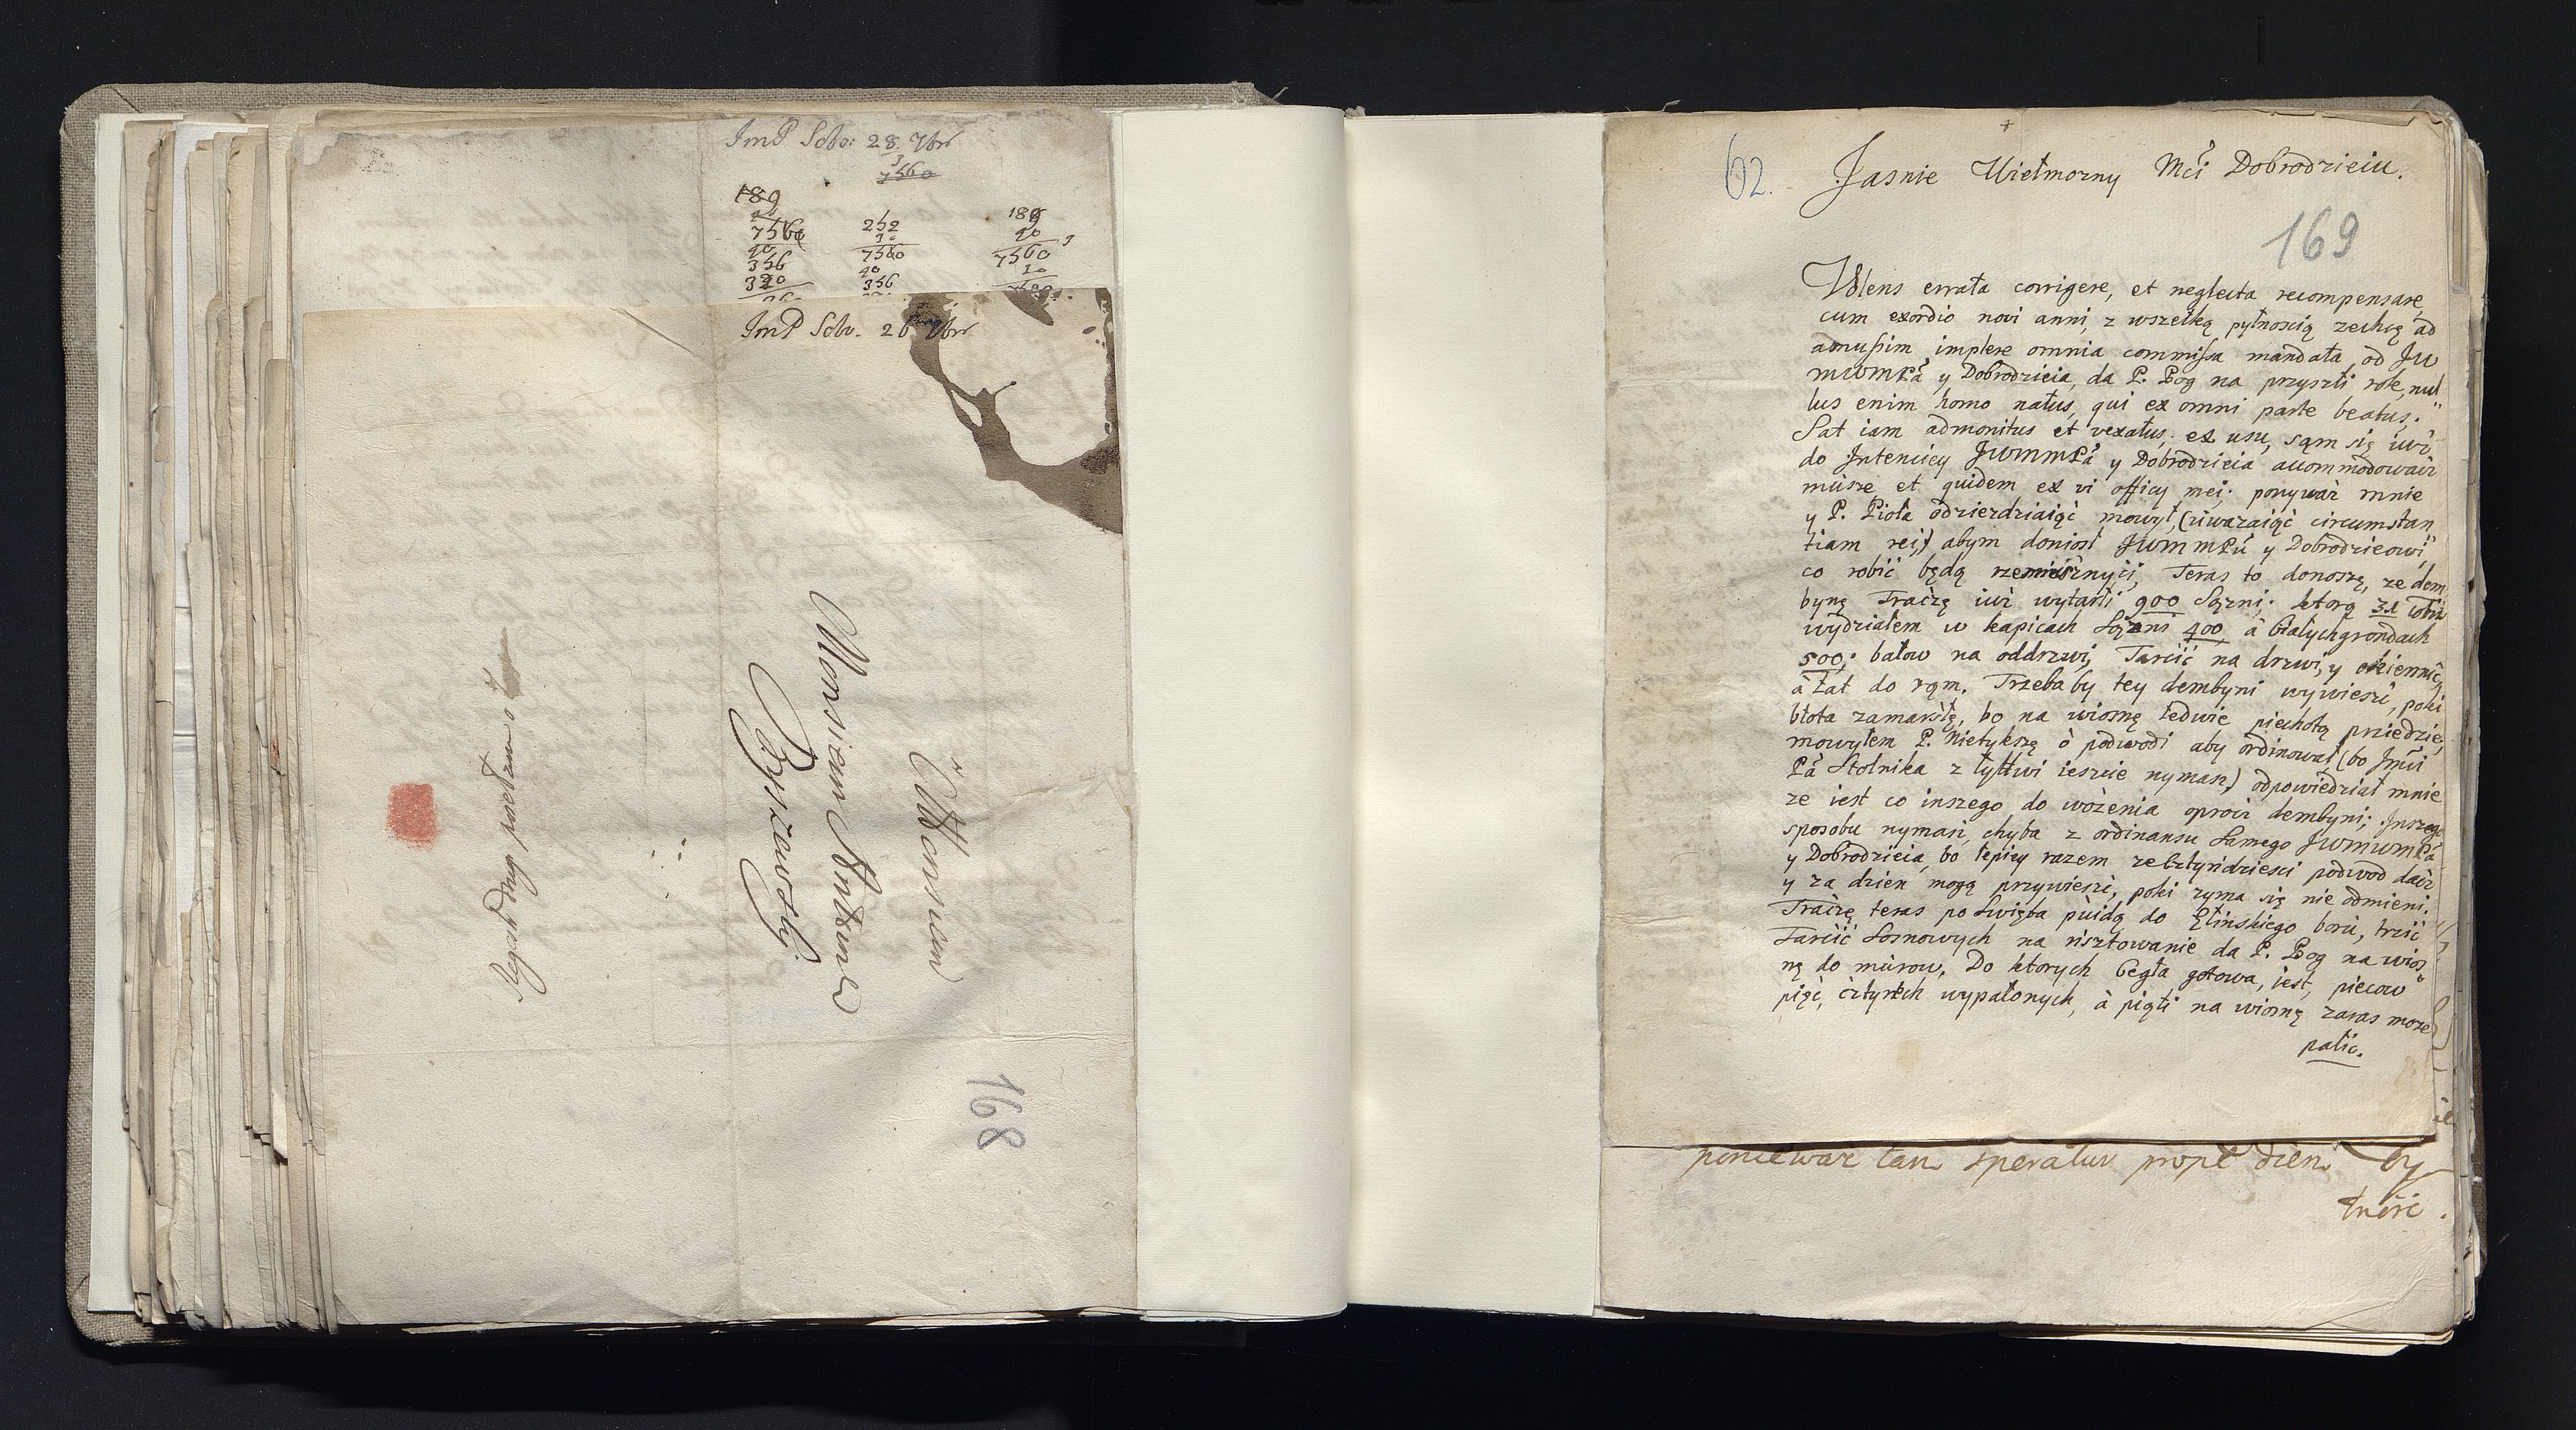 ImP Solv: 28. 7br
3
7560
189
7560
40
356
320
252
30
7560
40
356
189
40
7560
3
ImP Solv. 26 7br
A Monsieur
Monsieur Antoine
168
62.
Jasnie Wielmozny Mci Dobrodzieiu.
169
Volens errata corrigere, et neglecta recompensare,
cum exordio novi anni, z wszelką pylnoscią zechcę ad
admussim implere omnia commissa mandata, od JW
MWMPa y Dobrodzieia, da P. Bog na przyszli rok, nul
lus enim homo natus, qui ex omni parte beatus."
Sat iam admonitus et vexatus, ex usu, sąm się iuż
do Intenciey JWMMPa y Dobrodzieia accommodowacz
musze et quidem ex vi officij mei; ponywaz mnie
y P. Piola odziezdziaiąć mowyl, (uwazaiąć circumstan
tiam rei,) abym doniosl JWMMPu y Dobrodzieowi,
co robić będą rzemiesznyci, Teras to donoszę, ze dem
bynę Traczę iuz wytarli 900 Sązni; ktorą
wydzialem w kapicach Sązni 400, a bialychgrondach
500; balow na oddrzwi, Tarcić na drzwi, y okiennic,
a lat do rąm. Trzeba by tey dembyni wywieszć, poki
blota zamarzlę, bo na wiosnę ledwie piechotą prziedzie,
mowylem P. Nietykszę o podwodi aby ordinowal (bo Jmci
Pa Stolnika z Lyttwi ieszcie nymasz) odpowiedzial mnie
ze iest co inszego do wozenia oprocz dembyni; Inszego
sposobu nymasz, chyba z ordinansu Samego JWMWMPa
y Dobrodzieia, bo lepiey razem ze cztyrdziesci podwod dacz
y za dzien mogą przywieszć, poki zyma się nie odmieni.
Traczę teras po Swięta puidą do Elinskiego boru, trzić
Tarcić Sosnowych na risztowanie da P. Bog na wios
nę do murow. Do ktorych Cegla gotowa, iest, piecow
pięć, cztyrech wypalonych, a piąti na wiosnę zaras moze
palic.
poniewaz tam speratur prope diem by
tnosc.